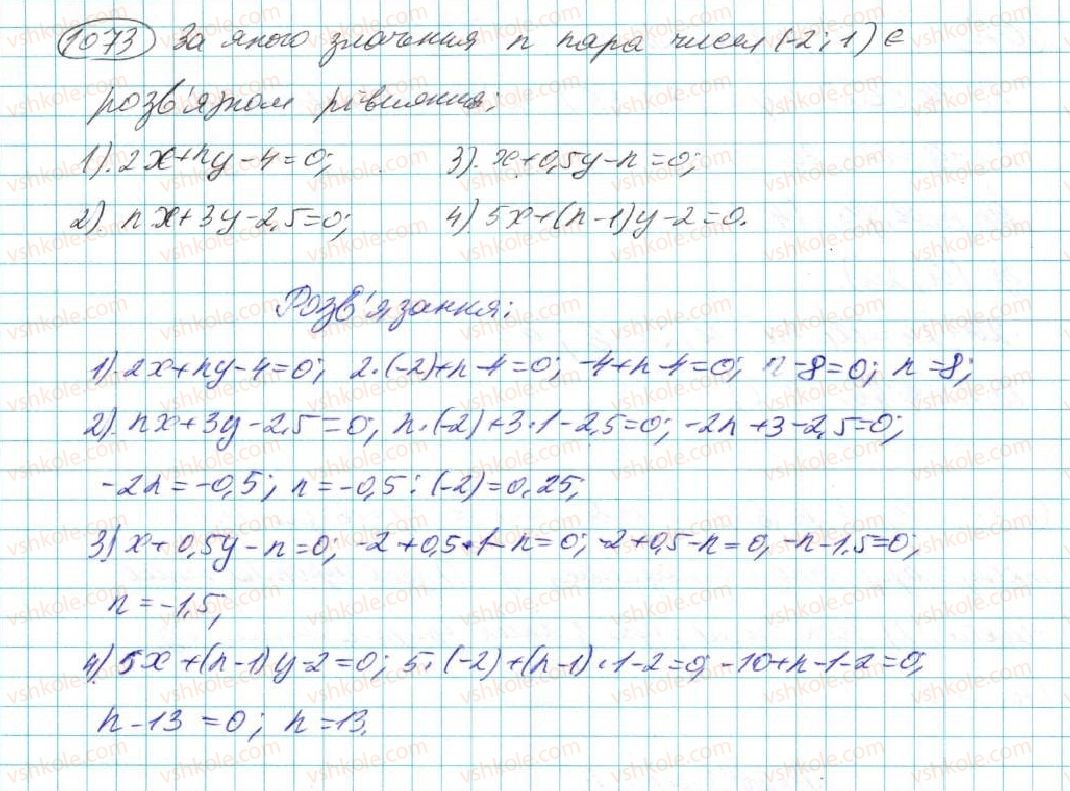 1073 За якого значення n пара чисел (-2; 1) є
розв'язком рівняння:
1). 2x+ny-4=0; 3). x+0,5y-n=0;
2). nx+3y-2,5=0; 4) 5x+(n-1)y-2=0.
Розв'язання:
1). 2x+ny-4=0; 2·(-2)+n-4=0; -4+n-4=0; n-8=0; n=8;
2). nx+3y-2,5=0; n·(-2)+3·1-2,5=0; -2n+3-2,5=0;
-2n=-0,5; n=-0,5:(-2)=0,25;
3) x+0,5y-n=0; -2+0,5·1-n=0; -2+0,5-n=0, -n-1,5=0;
n=-1,5;
4) 5x+(n-1)y-2=0; 5·(-2)+(n-1)·1-2=0; -10+n-1-2=0;
n-13=0; n=13.
vshkole.com